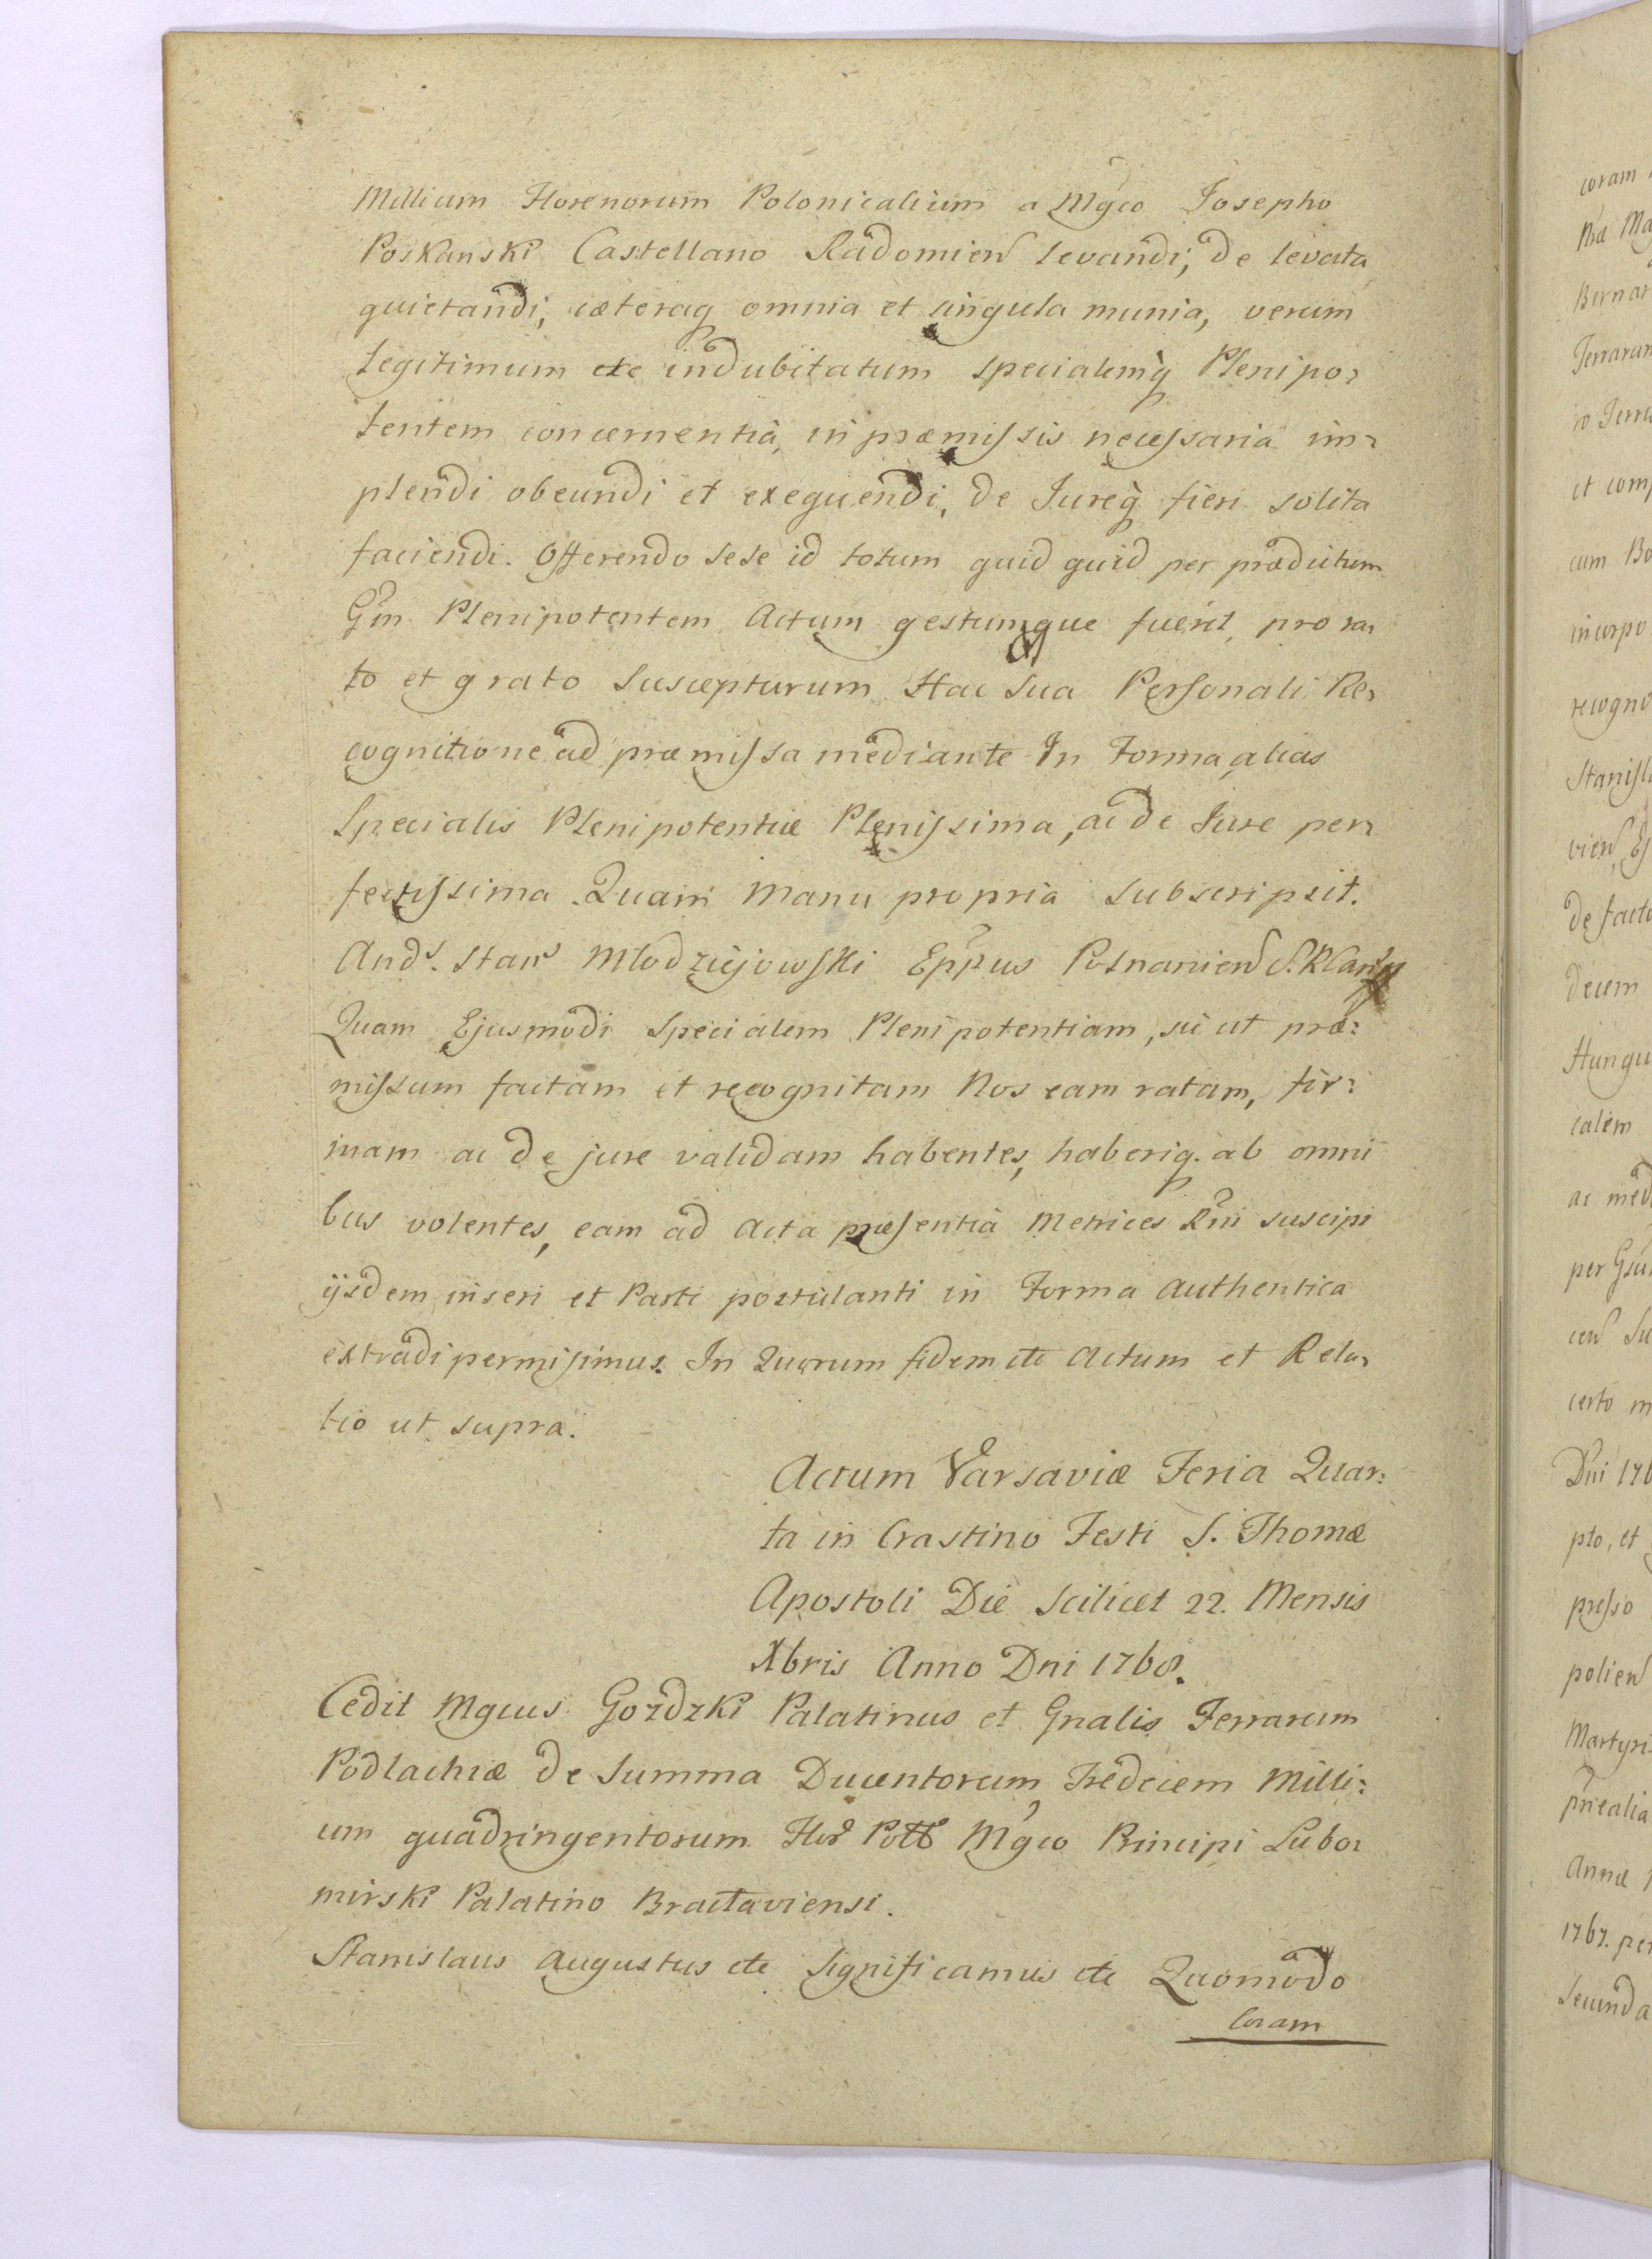 Millium Florenorum Polonicalium a Mgco Josepho
Poskanski Castellano Radomien levandi, de levata
quietandi, cæteraq omnia et singula munia, verum
legitimum etc indubitatum specialemq Plenipo-
tentem concernentia, in præmissis necessaria im-
plendi obeundi et exequendi, de Jureq fieri solita
faciendi. Offerendo sese id totum quid quid per prædictum
Gm Plenipotentem Actum gestumque fuerit, pro ra-
to et grato suscepturum Hac sua Personali Re-
cognitione ad præmissa mediante In Forma alias
Specialis Plenipotentiæ Plenissima, ac de Jure per-
fectissima. Quam Manu propria subscripsit.
Ands. Stans Młodziejowski Eppus Posnanien S.K
Quam Ejusmodi specialem Plenipotentiam, sic ut præ:
missum factam et recognitam Nos eam ratam, fir:
mam ac de jure validam habentes, haberiq. ab omni
bus volentes, eam ad Acta præsentia Metrices Rni suscipi
ijsdem inseri et Parti postulanti in Forma authentica
extradi permisimus. In Quorum fidem etc Actum et Rela-
tio ut supra.
Actum Varsaviæ Feria Quar:
ta in Crastino Festi S. Thomæ
Apostoli Die Scilicet 22. Mensis
Xbris Anno Dni 1768.
Cedit Mgcus Gozdzki Palatinus et Gnalis Terrarum
Podlachiæ de Summa Ducentorum Tredecem Milli:
um quadringentorum Flor Poll Mgco Principi Lubo-
mirski Palatino Bractaviensi.
Stanislaus Augustus etc Significamus etc Quomodo
Coram